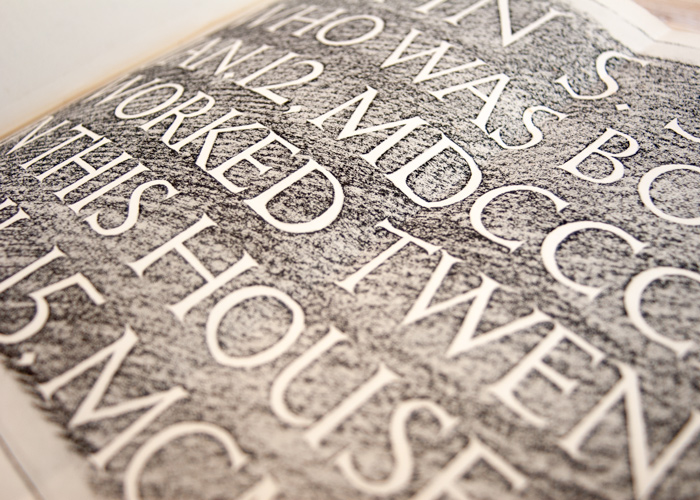 IN S.
WHO WAS BO
AN.12, MDCCC
WORKED TWEN
N THIS HOUSE
15, MC